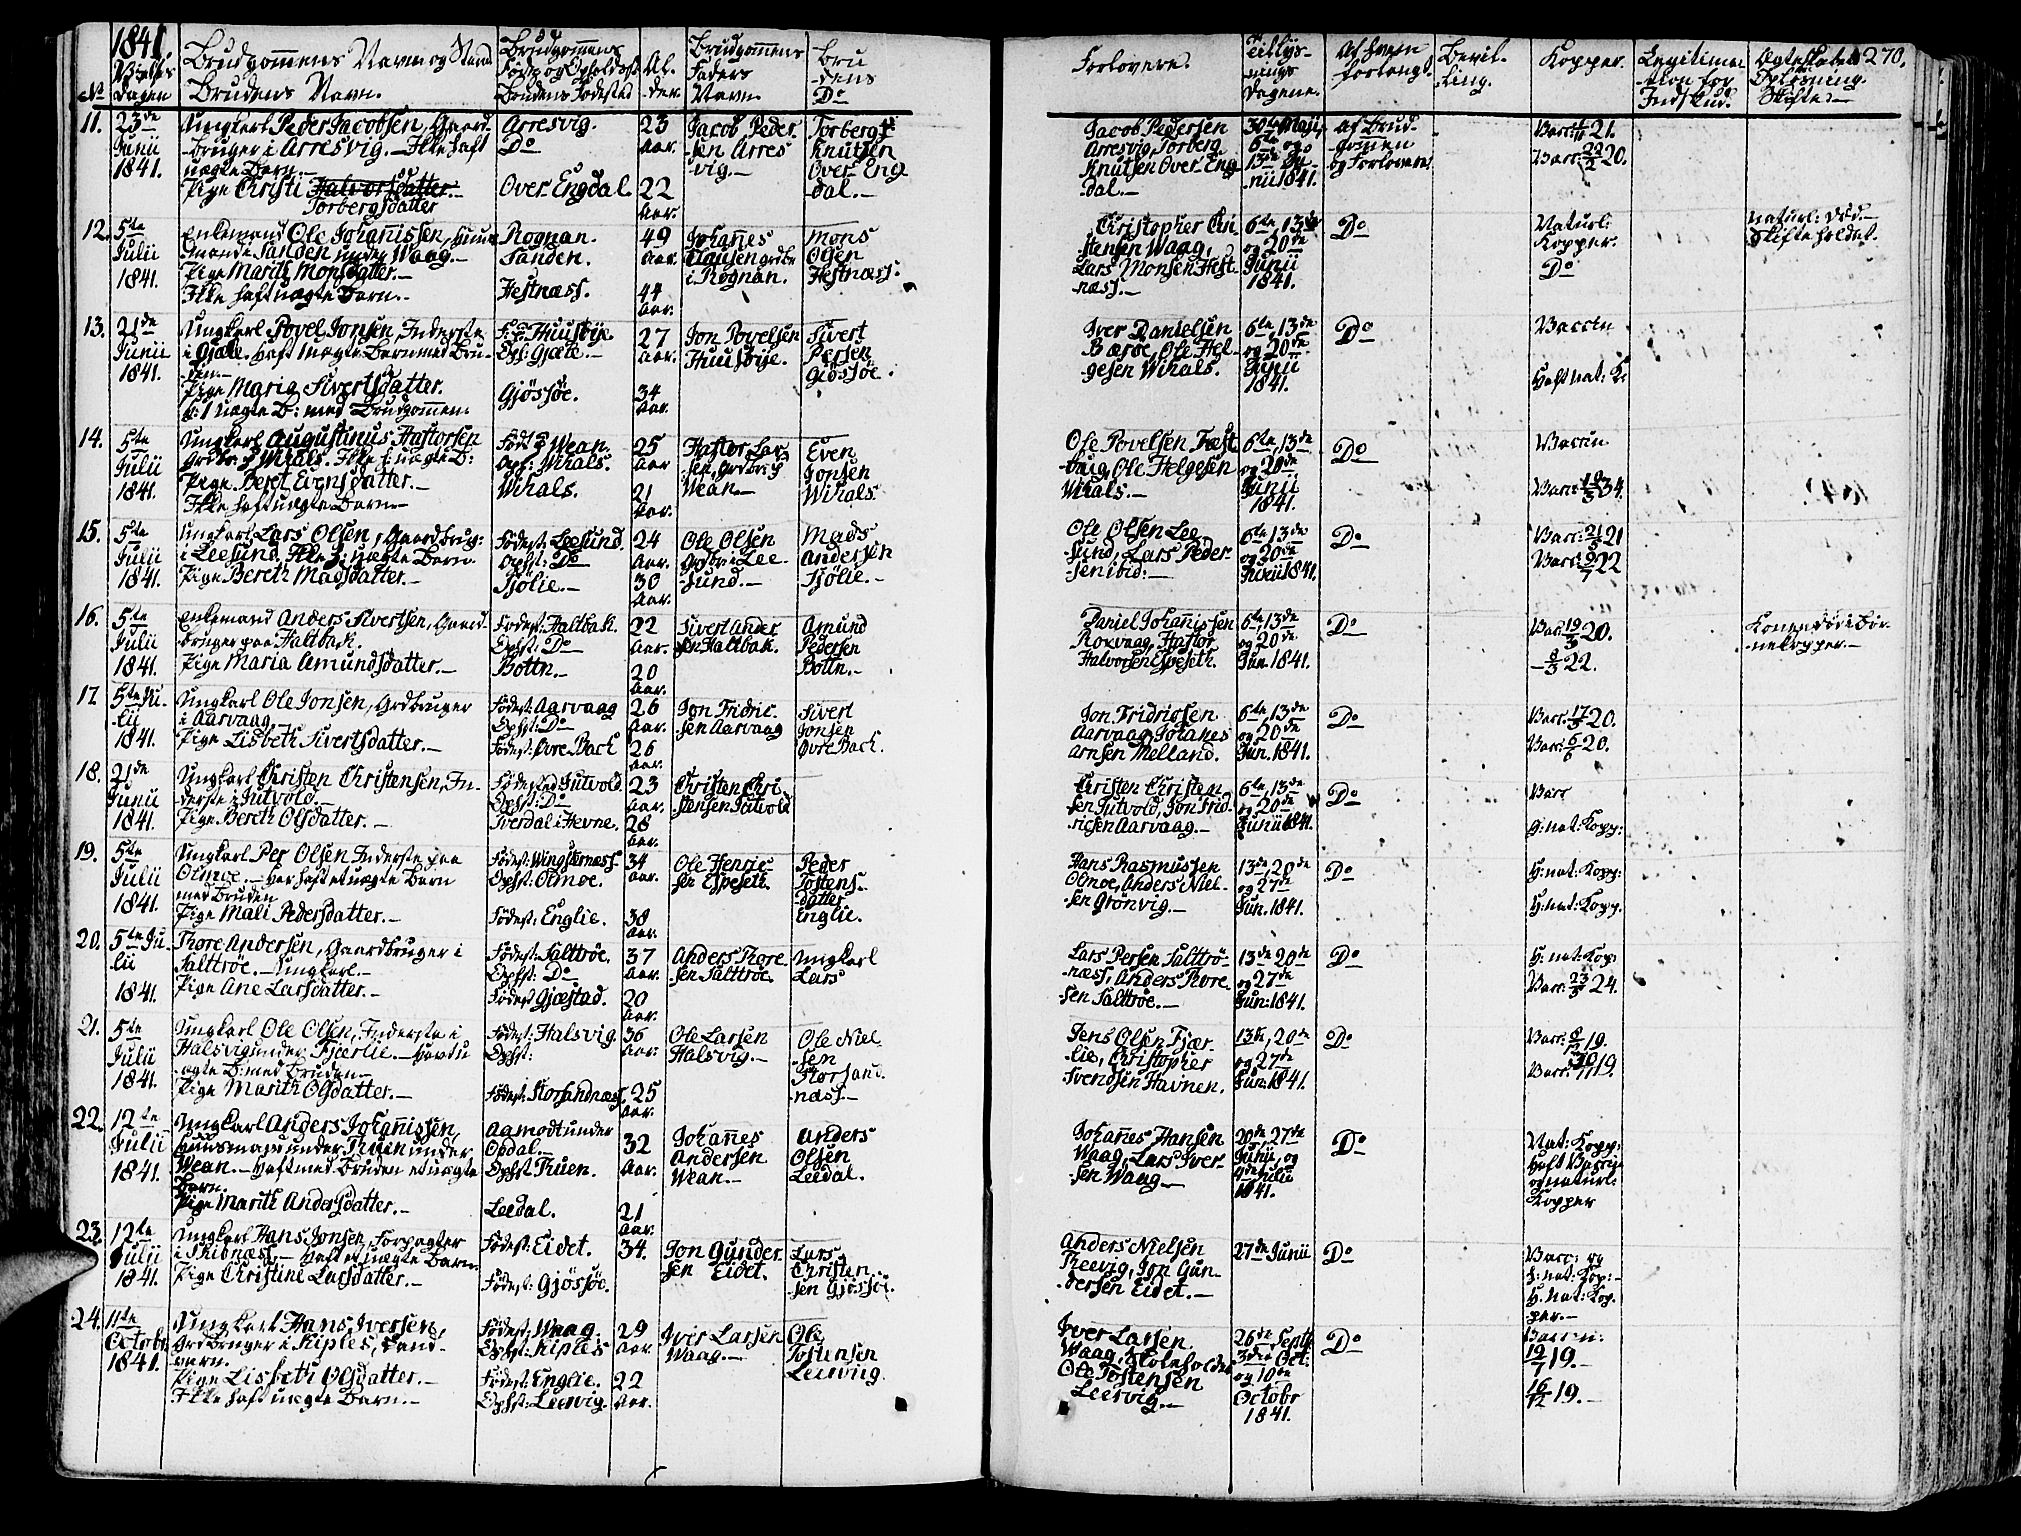 1841.
No
Vielses
Dagen
Brudgommens Navn og Stand
Brudens Navn.
Brudgommens
Føde og Opholdsst
Brudens Fødested
Al-
der.
Brudgommens
Faders
Navn.
Bru
dens
Do
Forlovere.
Tillys-
nings
Dagene.
Af hvem
forlangt.
Bevil-
ling.
Kopper.
Legitima-
tion for
Indskud.
Ægteskabets
Opløsning.
Skifte.—
270.
11. 23de
Junii
1841.
Ungkarl Peder Jacobsen, Gaard-
bruger i Arresvig.—Ikke haft
uægte Barn.—
Pige Christi Halvorsdatter.—
Torbergsdatter
Arresvig.
Do
Over Engdal.
23
Aar.
22
Aar.
Jacob Peder
sen Arres
vig.—
Torberg
Knutsen
Over Eng
dal.—
Jacob Pedersen
Arresvig, Torberg
Knutsen Over Eng
dal.—
30te Maji,
6te og
13de Ju
nii 1841.
Af Brud-
gomen
og Forloverne
Vacc: 21.
Vacc: 22/2 20.
12. 5te
Julii
1841.
Enkemand Ole Johannissen, Huus
mand i Sanden under Waag.—
Pige Marith Monsdatter.—
Ikke haft uægte Barn.—
Rognan.
Sanden.
Hestnæss.
49
Aar.
44
Aar.
Johannes
Clausen grdbr
i Rognan.
Mons
Olsen
Hestnæss.
Christopher Chri
stensen Waag,
Lars Monsen Hest-
næss.—
6te, 13de
og 20de
Junii
1841.
Do
Naturl:
Kopper.
Do
Naturl: Død.—
Skifte holdet.
13. 21de
Junii
1841.
Ungkarl Povel Jonsen, Inderste
i Gjæle. Haft 1 uægte Barn med Bru-
den.—
Pige Marig Sivertsdatter.
h: 1 uægte B: med Brudgommen.
F: p: Huusbye
Oph: Gjæte.—
Gjøssøe.
27
Aar.
34
Aar.
Jon Povelsen
Huusbye.
Sivert
Persen
Gjøssøe.
Iver Danielsen
Bærøe, Ole Hel-
gesen Wihals.
6te, 13de
og 20de
Junii
1841.
Do
Vaccin
Haft nat: K:
14. 5te
Julii
1841.
Ungkarl Augustinus Hastorsen
Grdbr: p Wihals. Ikke h: uægte B:
Pige Beret Evensdatter.—
Ikke haft uægte Barn.—
Født p Wean.
Oph: Wihals.
Wihals.
25
Aar
21
Aar.
Hastor Lar-
sen, Grdbr: p
Wean.—
Even
Jonsen
Wihals
Ole Povelsen Fæst
haug, Ole Helgesen
Wihals.—
6te, 13de
og 20de
Junii
1841.
Do
Vaccin
Vacc: 18/3 34.
15. 5te
Julii
1841.
Ungkarl Lars Olsen, Gaardbrug:
i Leesund. Ikke h: uægte Barn.
Pige Bereth Madsdatter.—
Fødest: Leesund.
Ophst: Do
Sjølie.—
24
Aar.
30
Aar.
Ole Olsen
Grdbr i Lee-
sund.—
Mads
Andersen
Sjølie.—
Ole Olsen Lee
sund, Lars Peder-
sen ibid:—
6te, 13de
og 20de
Junii 1841.
Do
Vacc: 21/5 21
Vacc: 9/7 22
16. 5te
Julii
1841.
Enkemand Anders Sivertsen, Gaard-
bruger paa Haltbak.
Pige Maria Amundsdatter.—
Fødest: Haltbak.
Ophst: Do
Bottn.—
22
Aar.
20
Aar.
Sivert Ander
sen Haltbak.
Amund
Pedersen
Bottn.—
Daniel Johannissen
Roxvaag, Hastor
Halvorsen Espeseth.
6te, 13de
og 20de
Jun. 1841.
Do
Vac: 19/9 20.
—8/3 22.
Konen døde Bør-
nekopper.—
17. 5te Ju-
lii
1841.
Ungkarl Ole Jonsen, Grdbruger
i Aarvaag.—
Pige Lisbeth Sivertsdatter.—
Fødest: Aarvaag
Ophst: Do
Fødest: Øvre Bach
26
Aar.
26
Aar.
Jon Fridric-
sen Aarvaag
Sivert
Jonsen
Øvre Bach.
Jon Fridricsen
Aarvaag, Johanes
Arnsen Melland.
6te, 13de
og 20de
Jun. 1841.
Do
Vacc: 17/5 20.
Vacc: 6/6 20.
18. 21de
Junii
1841.
Ungkarl Christen Christensen, In-
derste i Jutvold.—
Pige Bereth Olsdatter.—
Fødested Jutvold.
Ophst: Do
Sverdal i Hevne.
23
Aar.
28
Aar.
Christen Chri
stensen Jutvold
Christen Christen
sen Jutvold, Jon Frid-
ricsen Aarvaag.—
6te, 13de
og 20de
Junii 1841.
Do
Vacc
H: nat: Kopp:
19. 5te
Julii
1841.
Ungkarl Per Olsen Inderste paa
Olmoe.—Har haft et uægte Barn
med Bruden
Pige Mali Pedersdatter.—
Fødest: Wingsternæss.
Ophst: Olmoe.
Fødest: Englie.
34
Aar.
38
Aar.
Ole Henric-
sen Espeseth.
Peder
Tostens-
datter
Englie.
Hans Rasmussen
Olmoe, Anders Niel-
sen Grønvig.—
13de, 20de
og 27de
Jun. 1841.
Do
H: nat: Kopp:
H: nat: Kopp.
20. 5te Ju
lii
1841.
Thore Andersen, Gaardbruger i
Salttrøe.—Ungkarl.—
Pige Ane Larsdatter.—
Fødest: Salttrøe.
Ophst: Do
Fødest Gjæstad.
37
Aar.
20
Aar.
Anders Thore-
sen Salttrøe.
Ungkarl
Lars
Lars Persen Salttrø-
næss, Anders Thore-
sen Salttrøe.—
13de 20de
og 27de
Jun: 1841.
Do
H: nat: Kop:
Vacc: 23/5 24.
21. 5te
Julii
1841.
Ungkarl Ole Olsen, Inderste i
Halsvig under Fjærlie.—Har du
ægte B: med Bruden.—
Pige Marith Olsdatter.—
Fødest: Halsvig
Ophst:
Fødest: Storsandnæss.
36
Aar.
25
Aar.
Ole Larsen
Halsvig.—
Ole Niel
sen
Storsand-
næss.—
Jens Olsen Fjær-
lie, Christopher
Svendsen Havnen.
13de, 20de
og 27de
Jun: 1841.
Do
Vacc: 8/12 19.
Vacc: 30/11 19.
22. 12te
Julii
1841.
Ungkarl Anders Johannissen,
Huusmand under Thuen under
Wean.—Haft med Bruden et uægte
Barn.
Pige Marith Andersdatter.—
Aamodt under
Opdal.—
Ophst Thuen.
Leedal.
32
Aar.
21
Aar.
Johannes
Andersen
Wean.—
Anders
Olsen
Leedal.
Johannes Hansen
Waag, Lars Iver-
sen Waag.—
20de, 27de
Junii, og
4de Julii
1841.
Do
Nat: Kopp:
Haft Vaccin
og naturl:
Kopper
23. 12te
Julii
1841.
Ungkarl Hans Jonsen, Forpagter
i Skibnæss.—Haft et uægte Barn.
Pige Christine Larsdatter.—
Fødest: Eidet.
Fødest: Gjøssøe.
34.
Jon Gunder
sen Eidet.
Lars
Christen-
sen Gjøssøe.
Anders Nielsen
Theevig, Jon Gun-
dersen Eidet.—
27de Junii
Do
Vacc: og
h: nat: Kop:—
H: nat: Kop-
per.—
24. 11te
Octobr
1841.
Ungkarl Hans Iversen,
Grdbruger i Kiples, Land-
værn.
Pige Lisbeth Olsdatter.—
Ikke haft uægte Barn.—
Fødest: Waag.
Ophst: Kiples
Fødest: Englie.
Ophst: Leervig.
29
Aar.
22
Aar.
Iver Larsen
Waag.—
Ole
Tostensen
Leervig.
Iver Larsen
Waag, Skoleholder
Ole Tostensen
Leervig.—
26de Septb
3die Oct:
og 10de
Octobr
1841.
Do
Vaccin:
19/7 19.—
16/12 19.—